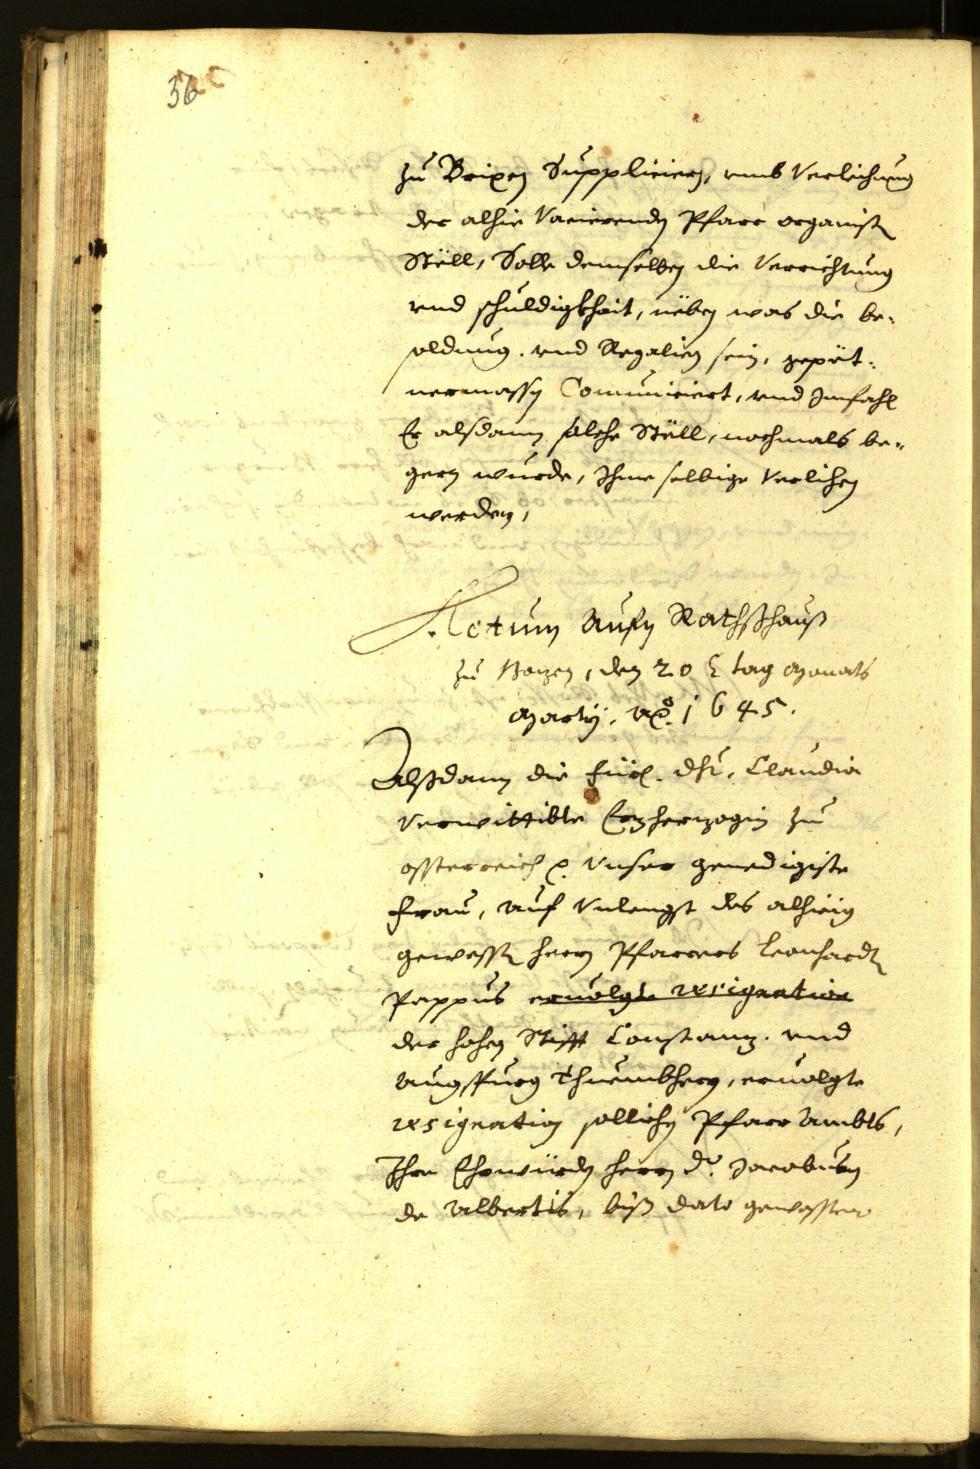 36
zu Brixen Supplicieren, umb Verleichung
der alhie Vacierenden Pfarr organist
Stöll, Solle demselben die Verrichtung
vnd schuldigkheit, neben was die be-
soldung. vnd Regalien sein, gepür-
nermassen Communiciert, vnd Imfahl
Er alsdann solche Stöll, nochmals be-
gern wurde, Ihme selbige Verlihen
werden,
Actum Aufn Rathßhauß
zu Bozen, den 20 tag Monats
Marty, A.º 1645.
Alßdann die Für. Dht. Claudia
Verwittibte Erzherzogin zu
Ossterreich &. Vnser genedigiste
Frau, auf Vnlengst des alhieig
gewesst herrn Pfarrers Leonhardt
Pappus ervolgte resignation
der hohen Stifft Constanz. vnd
Augspurg Thuembherrn, ervolgte
resignation sollichen Pfarr Ambts,
Ihre Ehrwürden herrn Dr. Jacobum
de Albertis, biß dato gewessten